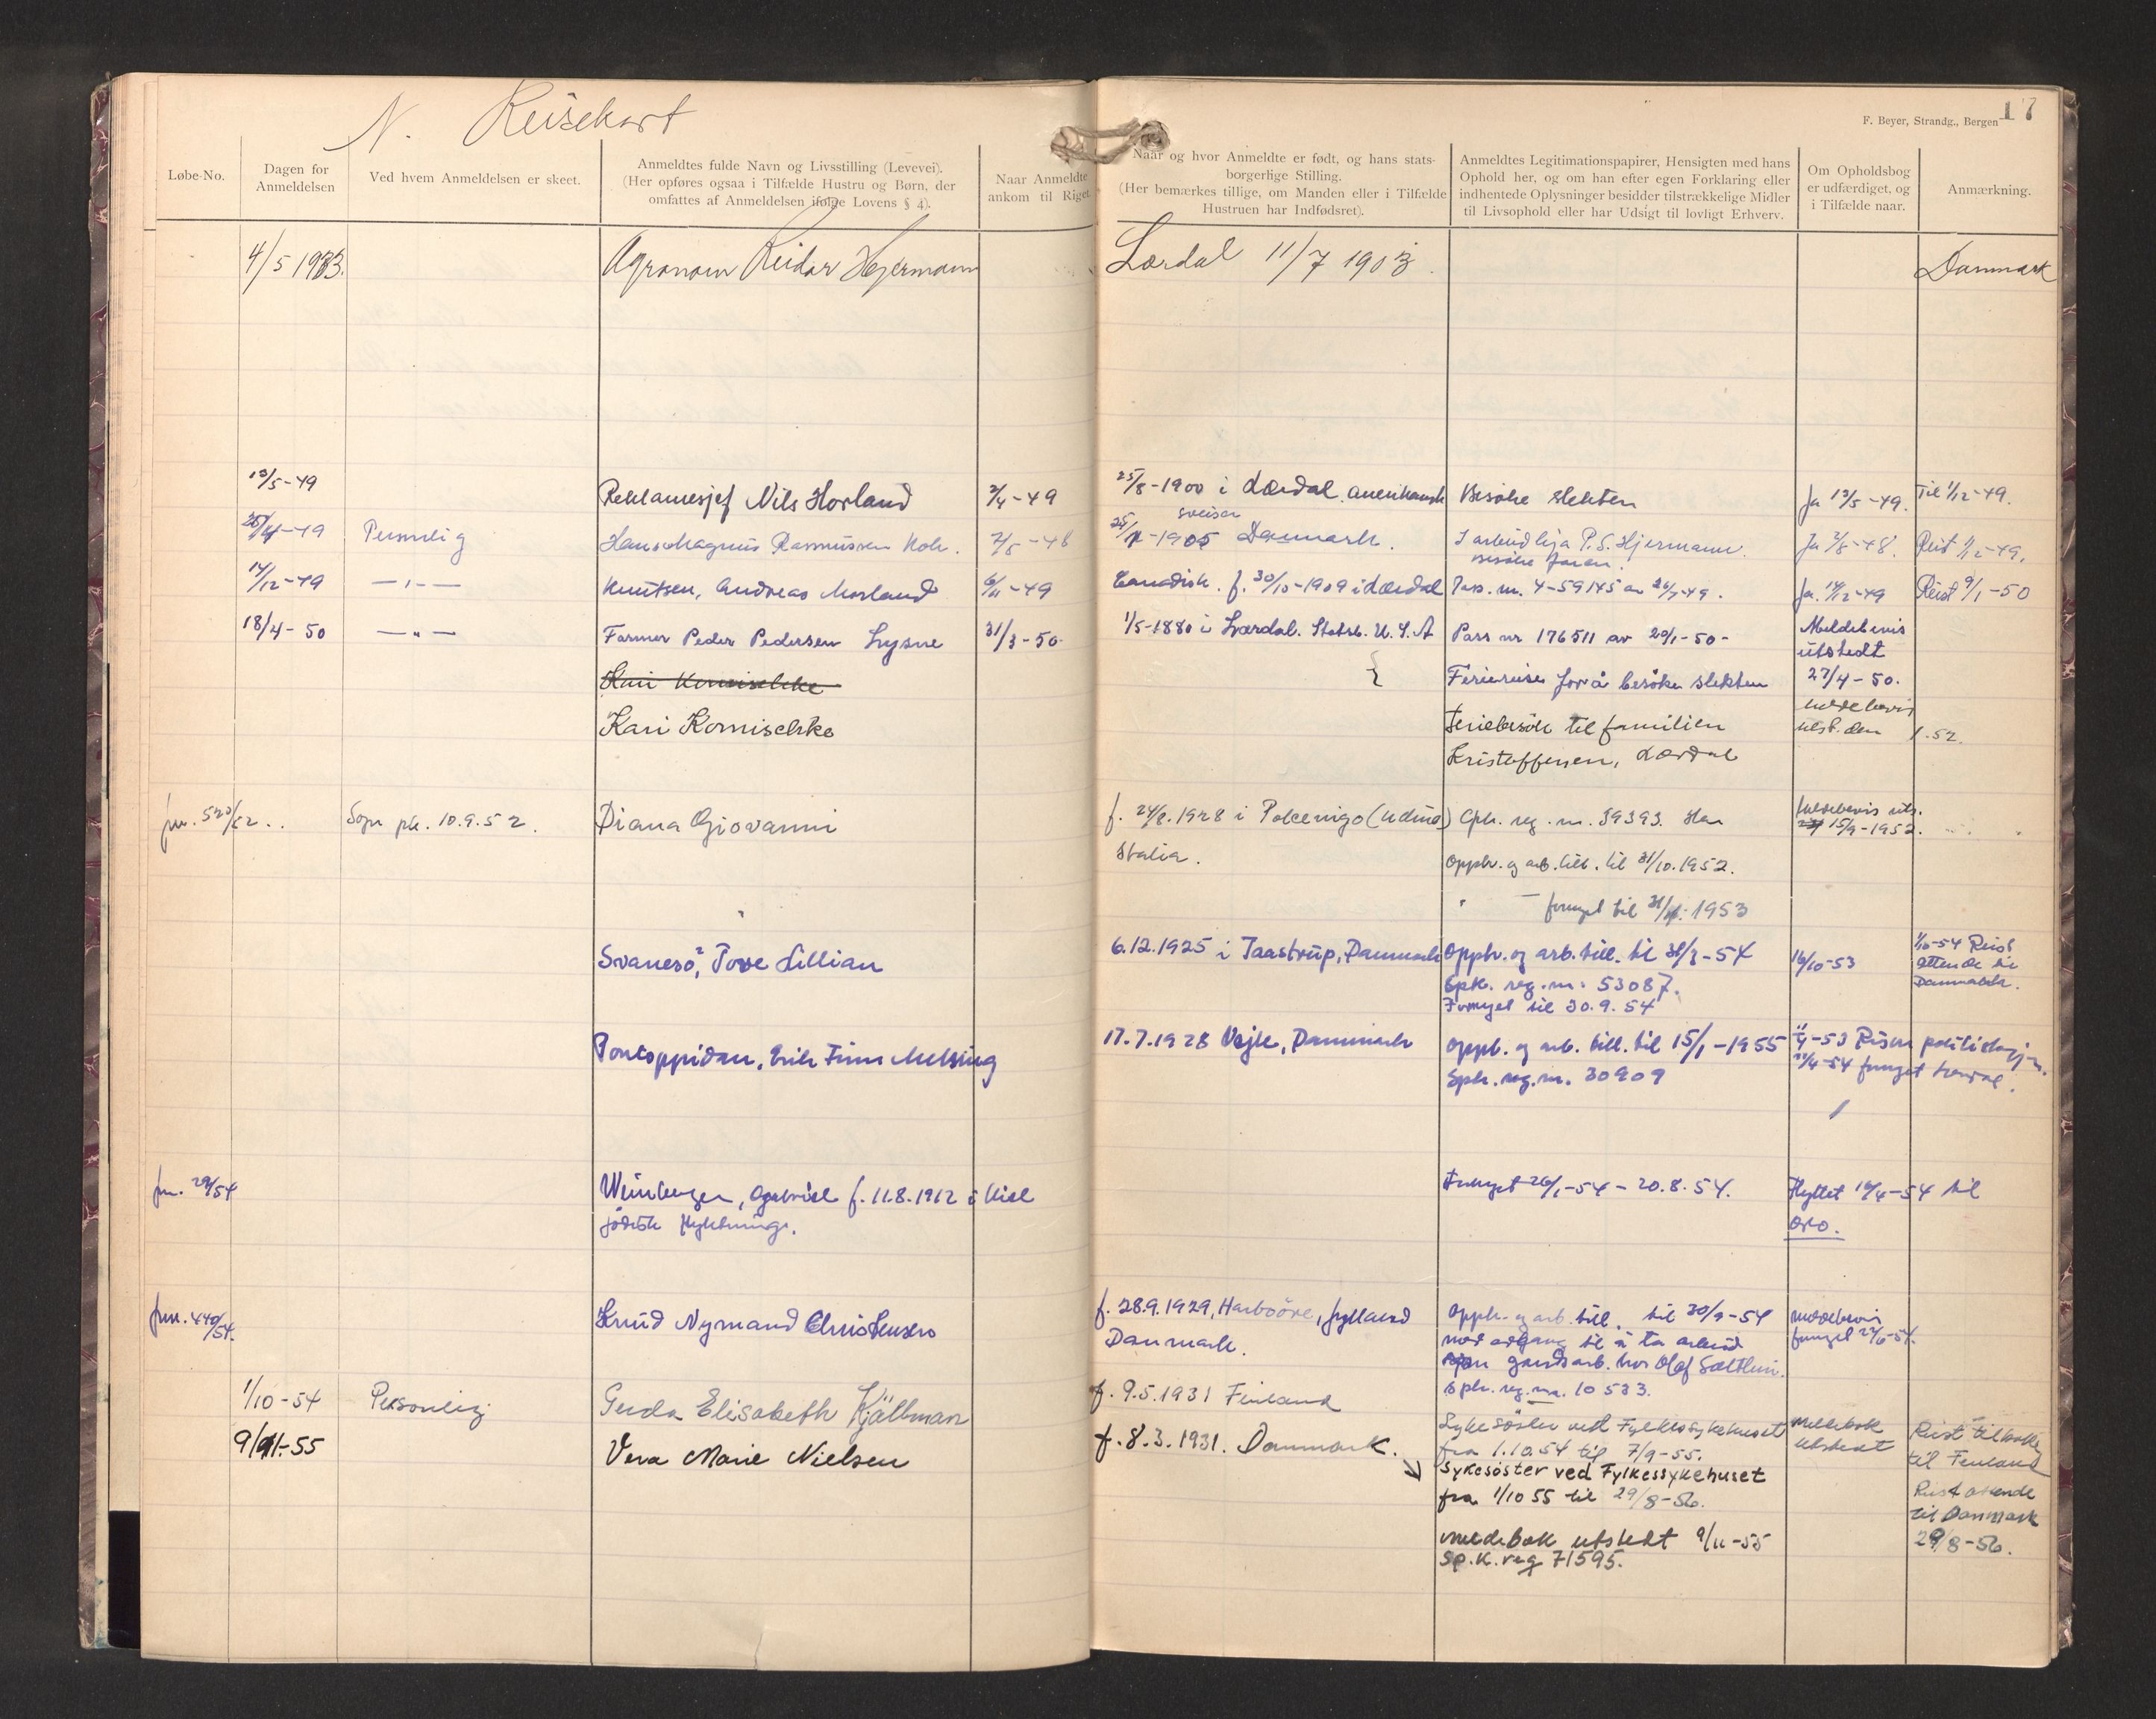 N. Reisekort
17
F. Beyer, Strandg., Bergen
Løbe-No.
Dagen for
Anmeldelsen
Ved hvem Anmeldelsen er skeet.
Anmeldtes fulde Navn og Livsstilling (Levevei).
(Her opføres ogsaa i Tilfælde Hustru og Børn, der
omfattes af Anmeldelsen ifølge Lovens § 4).
Naar Anmeldte
ankom til Riget.
Naar og hvor Anmeldte er født, og hans stats-
borgerlige Stilling.
(Her bemærkes tillige, om Manden eller i Tilfælde
Hustruen har Indfødsret).
Anmeldtes Legitimationspapirer, Hensigten med hans
Ophold her, og om han efter egen Forklaring eller
indhentede Oplysninger besidder tilstrækkelige Midler
til Livsophold eller har Udsigt til lovligt Erhverv.
Om Opholdsbog
er udfærdiget, og
i Tilfælde naar.
Anmærkning.
4/5 1933.
Agronom Reidar Hjermann
Lærdal 11/7 1903
Danmark
13/5-49
Reklamesjef Nils Horland
2/4-49
25/8-1900 i Lærdal. amerikansk
Besøke slekten
Ja 13/5-49.
Til 1/12-49.
Personlig
Hans Magnus Rasmussen
2/5-48
sveiser
-1905 Danmark.
I arbeid hja P.S. Hjermann.
Ja 2/8-48.
Reist 1/12-49.
14/12-49
— " —
Knutsen, Andreas Morland
6/11-49
Canadisk. f. 30/10-1909 i Lærdal
Pass. nr. 4-59145 av 26/7-49.
Ja. 14/12-49
Reist 9/1-50
18/4-50
— " —
Farmer Peder Pedersen Lysne
31/3-50
1/5-1880 i Lærdal. Statsb. U.S.A
Pass nr 176511 av 20/1-50-
Meldebevis
utstedt
27/4-50.
Feriereise for å besøke slekten
Kari Komischke
Feriebesök til familien
Kristoffersen, Lærdal
meldebevis
utst. den 1.52.
jnr. 520/52..
Sogn pk. 10.9.52.
Diana Giovanni
f. 24/8.1928 i Polcenigo (Udine)
Italia.
Spk. reg. nr. 39393. Har
opph. og arb. till. til 31/10.1952.
- fornyet til 1953
Meldebevis uts.
15/9-1952.
Svanesö, Tove Lillian
6.12.1925 i Taastrup, Danmark
opph. og arb. till. til 31/3-54
Spk. reg. nr. 53087.
Fornyet til 30.9.54
16/10-53
1/10-54 Reist
attende til
Danmark.
Pontoppidan, Erik Finn
17.7.1928 Vejle, Danmark
opph. og arb. till. til 15/1-1955
Spk. reg. nr. 30909
-54 fornyet Lærdal.
jnr. 29/54
Weinberger, Gabriel f. 11.8.1912 i Kiel
jødisk flyktning.
Fornyet 26/1-54 - 20.8.54.
Flyttet 14/4-54 til
Oslo.
jnr. 440/54.
Knud Nymand Christensen
f. 28.9.1929, Harboöre, Jylland
Danmark.
Opph. og arb. till. til 30/9-54
med adgang til å ta arbeid
som gardsarb. hos Olof
Spk. reg. nr. 10533.
meldebevis
fornyet 24/6-54.
1/10-54
Personlig
Gerda Elisabeth Kjällman
f. 9.5.1931 Finland
Sykesöster ved Fylkessykehuset
fra 1.10.54 til 7/9-55.
Meldebok
utstedt
Reist tilbake
til Finland
9/11-55
Vera Marie Nielsen
f. 8.3.1931. Danmark.
Sykesöster ved Fylkessykehuset
fra 1/10 55 til 29/8-56.
meldebok utstedt 9/11-55
Sp.K.reg 71595.
Reist attende
til Danmark
29/8-56.